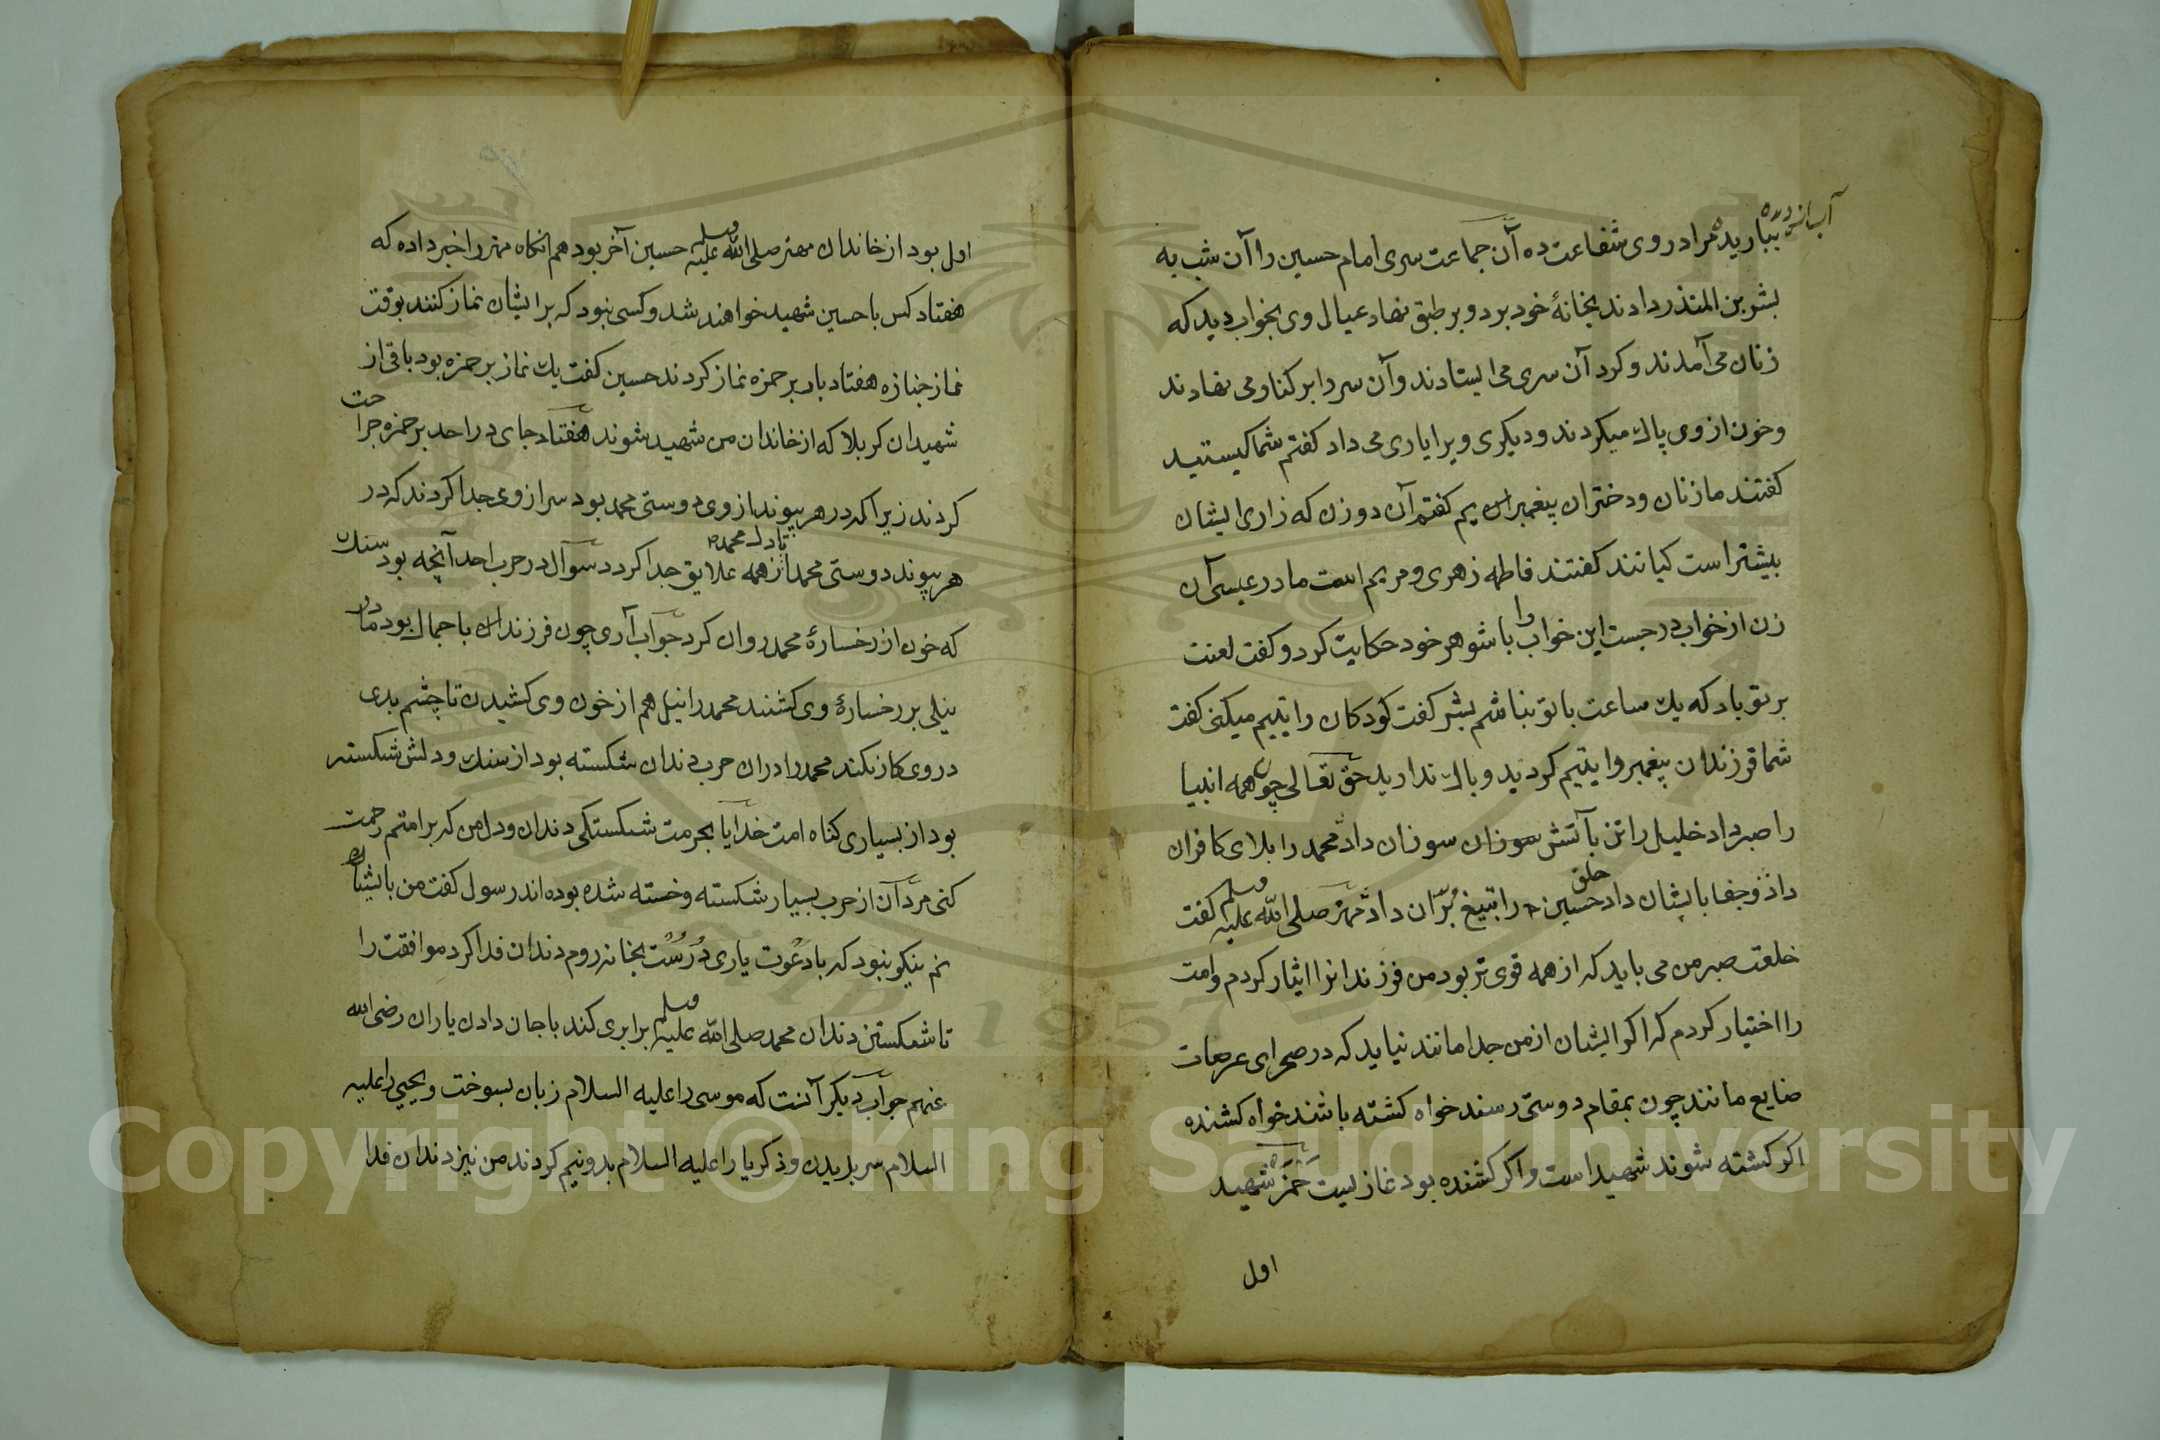 آب از دیده
بباریده مرا در وی شفاعت ده آن جماعت سری امام حسین را آن شب به
بشر بن المنذر دادند بخانهٔ خود برد و بر طبق نهاد عیال وی بخواب دید که
زنان می آمدند و کرد آن سری می ایستادند و آن سر را بر کنار می نهادند
و خون از وی پاك میکردند و دیکری ویرا یاری می داد کفتم شما کیستید
کفتند ما زنان و دختران پیغمبران یم کفتم آن دو زن که زاری ایشان
بیشتر است کیانند کفتند فاطمه زهری و مریم است مادر عیسی آن
زن از خواب در جست این خواب را با شوهر خود حکایت کرد و کفت لعنت
بر تو باد که یك ساعت با تو بناشم بشر کفت کودکان را یتیم میکنی کفت
شما فرزندان پیغمبر را یتیم کردید و باك ندارید حق تعالی چون همه انبیا
را صبر داد خلیل را تن بآتش سوزان سوزان داد محمد را بلای کافران
داد و جفا بایشان داد حسین را حلق بتیغ بران داد مهتر صلی الله علیه وسلم کفت
خلعت صبر من می باید که از همه قوی تر بود من فرزندانرا ایثار کردم و امت
را اختیار کردم که اکر ایشان از من جدا مانند نیاید که در صحرای عرصات
ضایع مانند چون بمقام دوستی رسند خواه کشته باشند خواه کشنده
اکر کشته شوند شهید است و اکر کشنده بود غازیست حمزه شهید
اول
اول بود از خاندان مهتر صلی الله علیه وسلم حسین آخر بود هم انکاه مهتر را خبر داده که
هفتاد کس با حسین شهید خواهند شد و کسی نبود که بر ایشان نماز کنند بوقت
نماز جنازه هفتاد بار بر حمزه نماز کردند حسین کفت یك نماز بر حمزه بود باقی از
شهیدان کربلا که از خاندان من شهید شوند هفتاد جای در احد بر حمزه جراحت
کردند زیرا که در هر پیوند از وی دوستی محمد بود سر از وی جدا کردند که در
هر پیوند دوستی محمد از همه علایق جدا کردد سؤال در حرب احد آنچه بود سنك
تا دل محمد
که خون از رخسارهٔ محمد روان کرد جواب آری چون فرزندان با جمال بود مادر
نیلی بر رخسارهٔ وی کشند محمد را نیل هم از خون وی کشیدن تا چشم بدی
در وی کار نکند محمد را در ان حرب دندان شکسته بود از سنك و دلش شکسته
بود از بسیاری کناه امت خدایا بحرمت شکستکی دندان و دل من که بر امتم رحمت
کنی مرد آن از حرب بسیار شکسته و خسته شده بوده اند رسول کفت من با ایشان
نم نیکو نبود که با دعوت یاری درست بخانه روم دندان فدا کرد موافقت را
تا شکستن دندان محمد صلی الله علیه وسلم برابری کند با جان دادن یاران رضی الله
عنهم جواب دیکر آنست که موسی را علیه السلام زبان بسوخت و یحیی را علیه
السلام سر بریدن و ذکریا را علیه السلام بدو نیم کردند من نیز دندان فدا
Copyright © King Saud University
1957